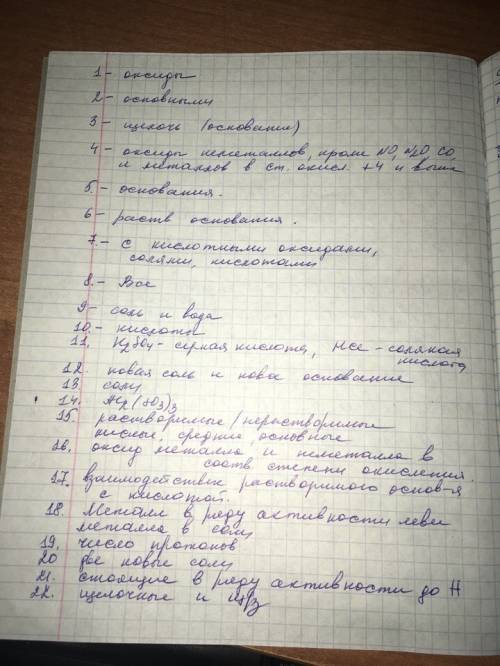 1 - оксиды
2 - основными
3 - щелочь (основание)
4 - оксиды неметаллов, кроме NO, N2O CO,
и металлов в ст. окисл. +4 и выше
5. - основания.
6 - раств основания.
7. - с кислотными оксидами,
солями, кислотами
8. - Все
9 - соль и вода
10. - кислоты
11. H2SO4 - серная кислота, HCl - соляная
кислота
12. новая соль и новое основание
13. соли
14. Al2(SO3)3
15. растворимые/нерастворимые
кислые, средние, основные
16. оксид металла и неметалла в
соотв степени окисления.
17. взаимодействие растворимого основ-я
с кислотой.
18. Металл в ряду активности левее
металла в соли
19. число протонов
20 две новые соли
21. стоящие в ряду активности до H
22. щелочные и щ/з